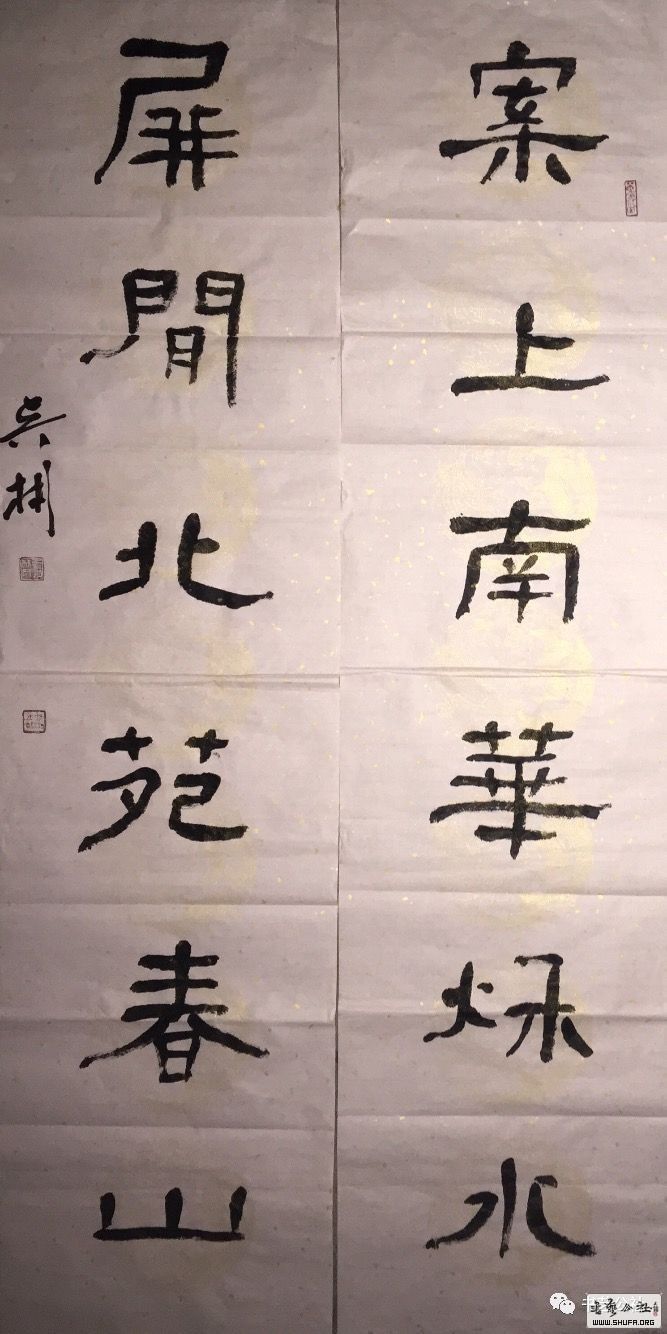 案上南華秌水
屏間北苑春山
吴彬
书艺公社
WWW.SHUFA.ORG